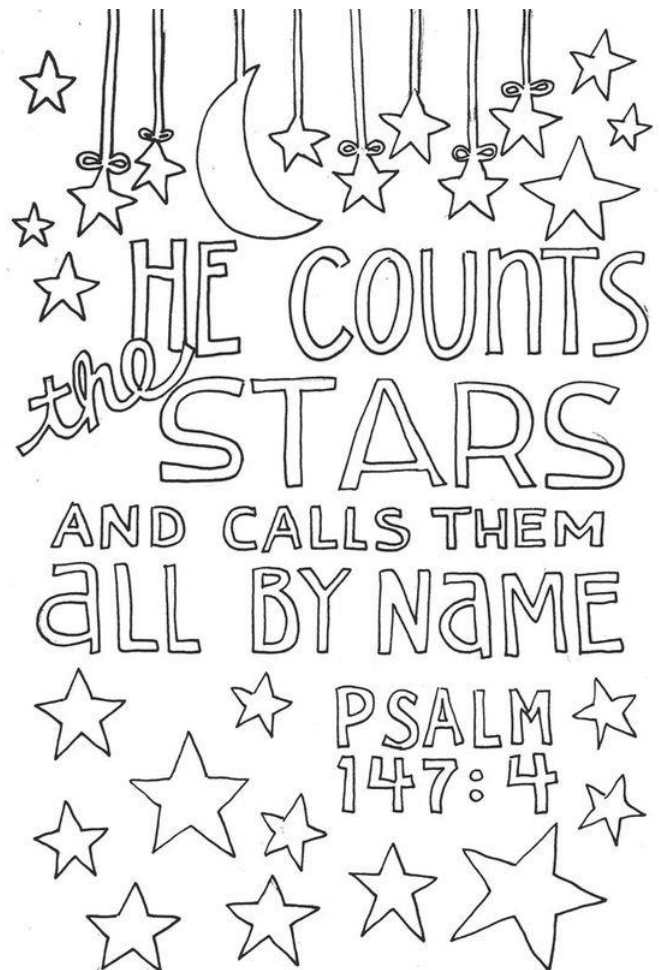 HE COUNTS
the STARS
AND CALLS THEM
aLL BY NaME
PSALM
147:4